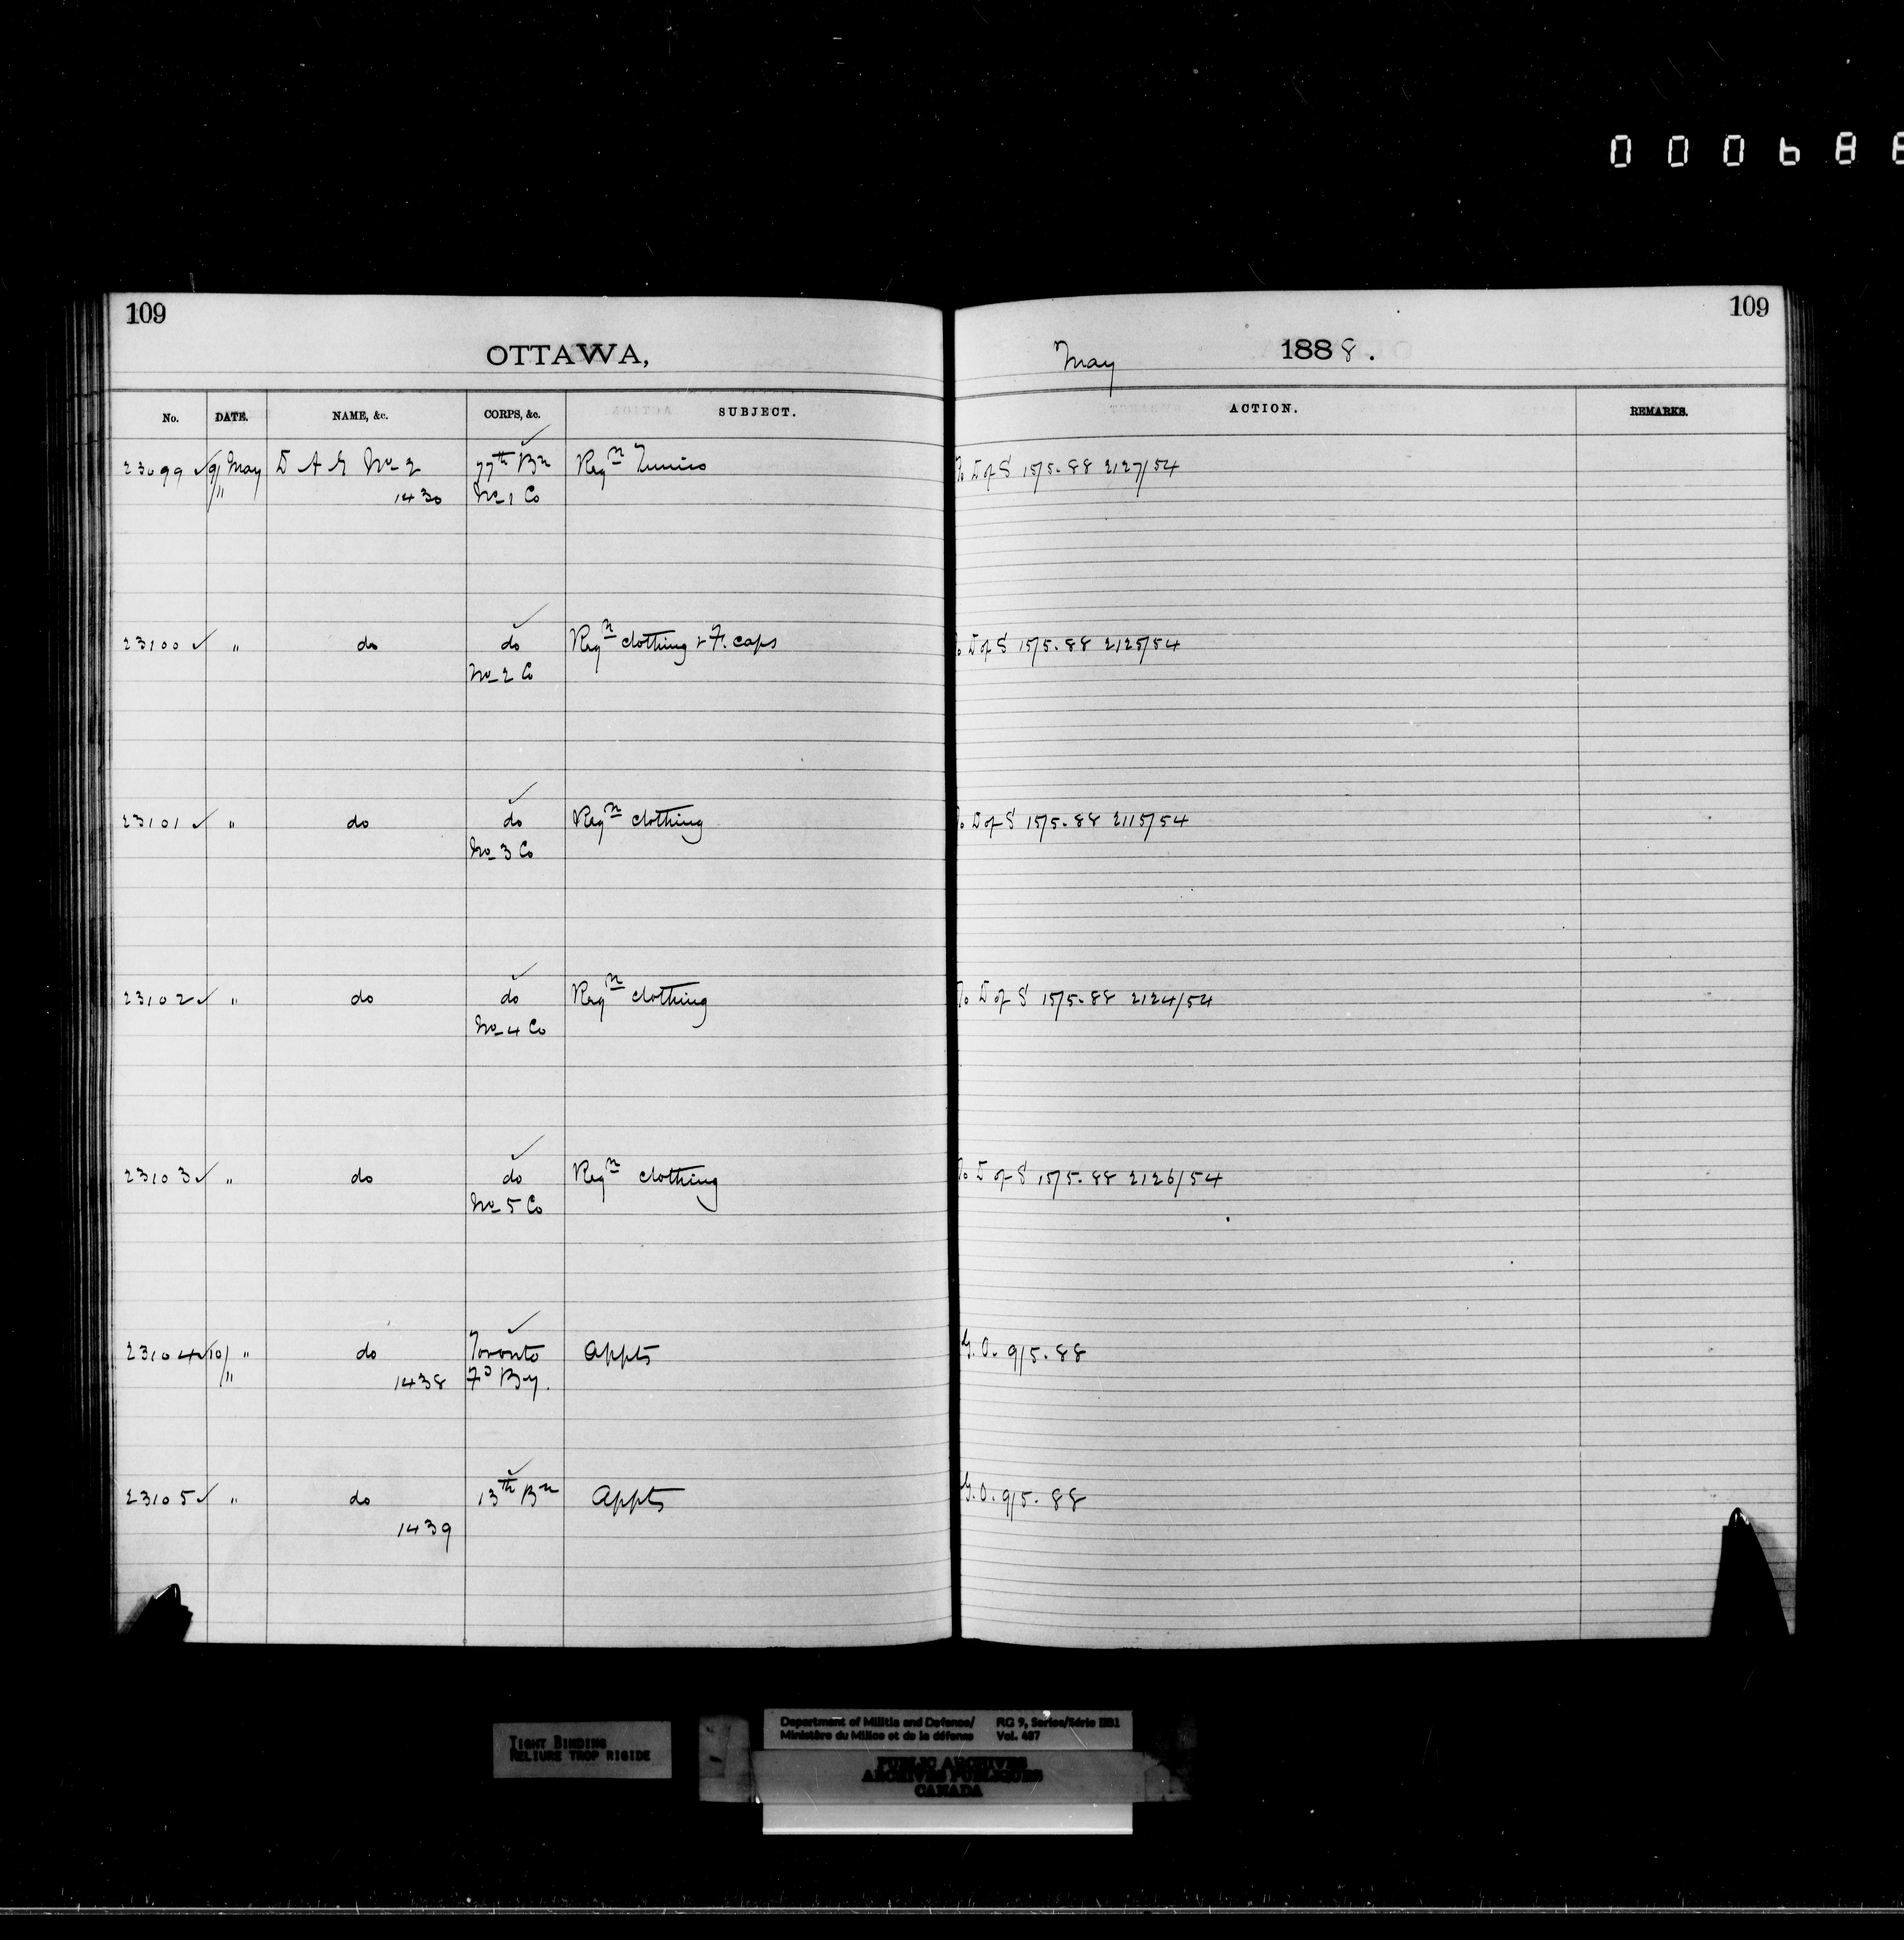 000688
109
109
OTTAWA,
May 1888.
No. DATE. NAME, &c. CORPS, &c. SUBJECT. ACTION. REMARKS.
23099 ✓ 9/ May D A G No 2 77th Bn Reqn Tunics To D of S 15/5.88 2127/54
" 1430 No 1 Co
23100 ✓ " do do Reqn clothing & F. caps To D of S 15/5.88 2125/54
No 2 Co
23101 ✓ " do do Reqn clothing To D of S 15/5.88 2115/54
No 3 Co
23102 ✓ " do do Reqn clothing To D of S 15/5.88 2124/54
No 4 Co
23103 ✓ " do do Reqn clothing To D of S 15/5.88 2126/54
No 5 Co
23104 ✓ 10/ " do Toronto Appts G.O. 9/5.88
" 1438 Fd By.
23105 ✓ " do 13th Bn Appts G.O. 9/5.88
1439
TIGHT BINDING
RELIURE TROP RIGIDE
Department of Militia and Defence/ RG 9, Series/Série IIB1
Ministère du Milice et de la défense Vol. 487
PUBLIC ARCHIVES
ARCHIVES PUBLIQUES
CANADA